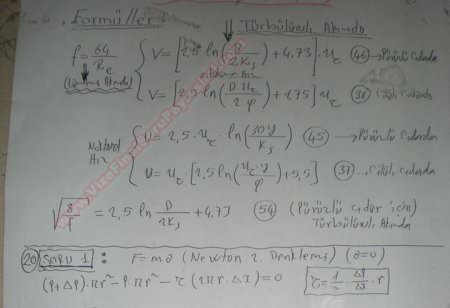 Formüller
Türbülanslı Akımda
f = 64/Re
V = [2,5 ln(D/2Ks) + 4.73] . uτ (46) → Pürüzlü Cidarda
V = [2,5 ln(D.uτ/2.φ) + 1,75] uτ (38) Cilalı Cidarda
Noktasal Hız
U = 2,5 . uτ . ln(30y/Ks) (45) → Pürüzlü Cidarda
U = uτ . [2,5 ln(uτ.y/φ) + 5,5] (37) → Cilalı Cidarda
√(8/f) = 2,5 ln D/2Ks + 4.73 (54) (Pürüzlü cidar için) Türbülanslı Akımda
(20) SORU 1 : F = ma (Newton 2. Denklemi) (a=0)
(P+ΔP).πr² - P.πr² - τ(2πr.Δx) = 0 τ = 1/2 . ΔP/Δx . r
www.VizeFinal